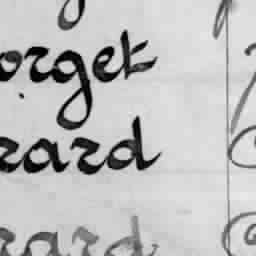 orget
rard
rard